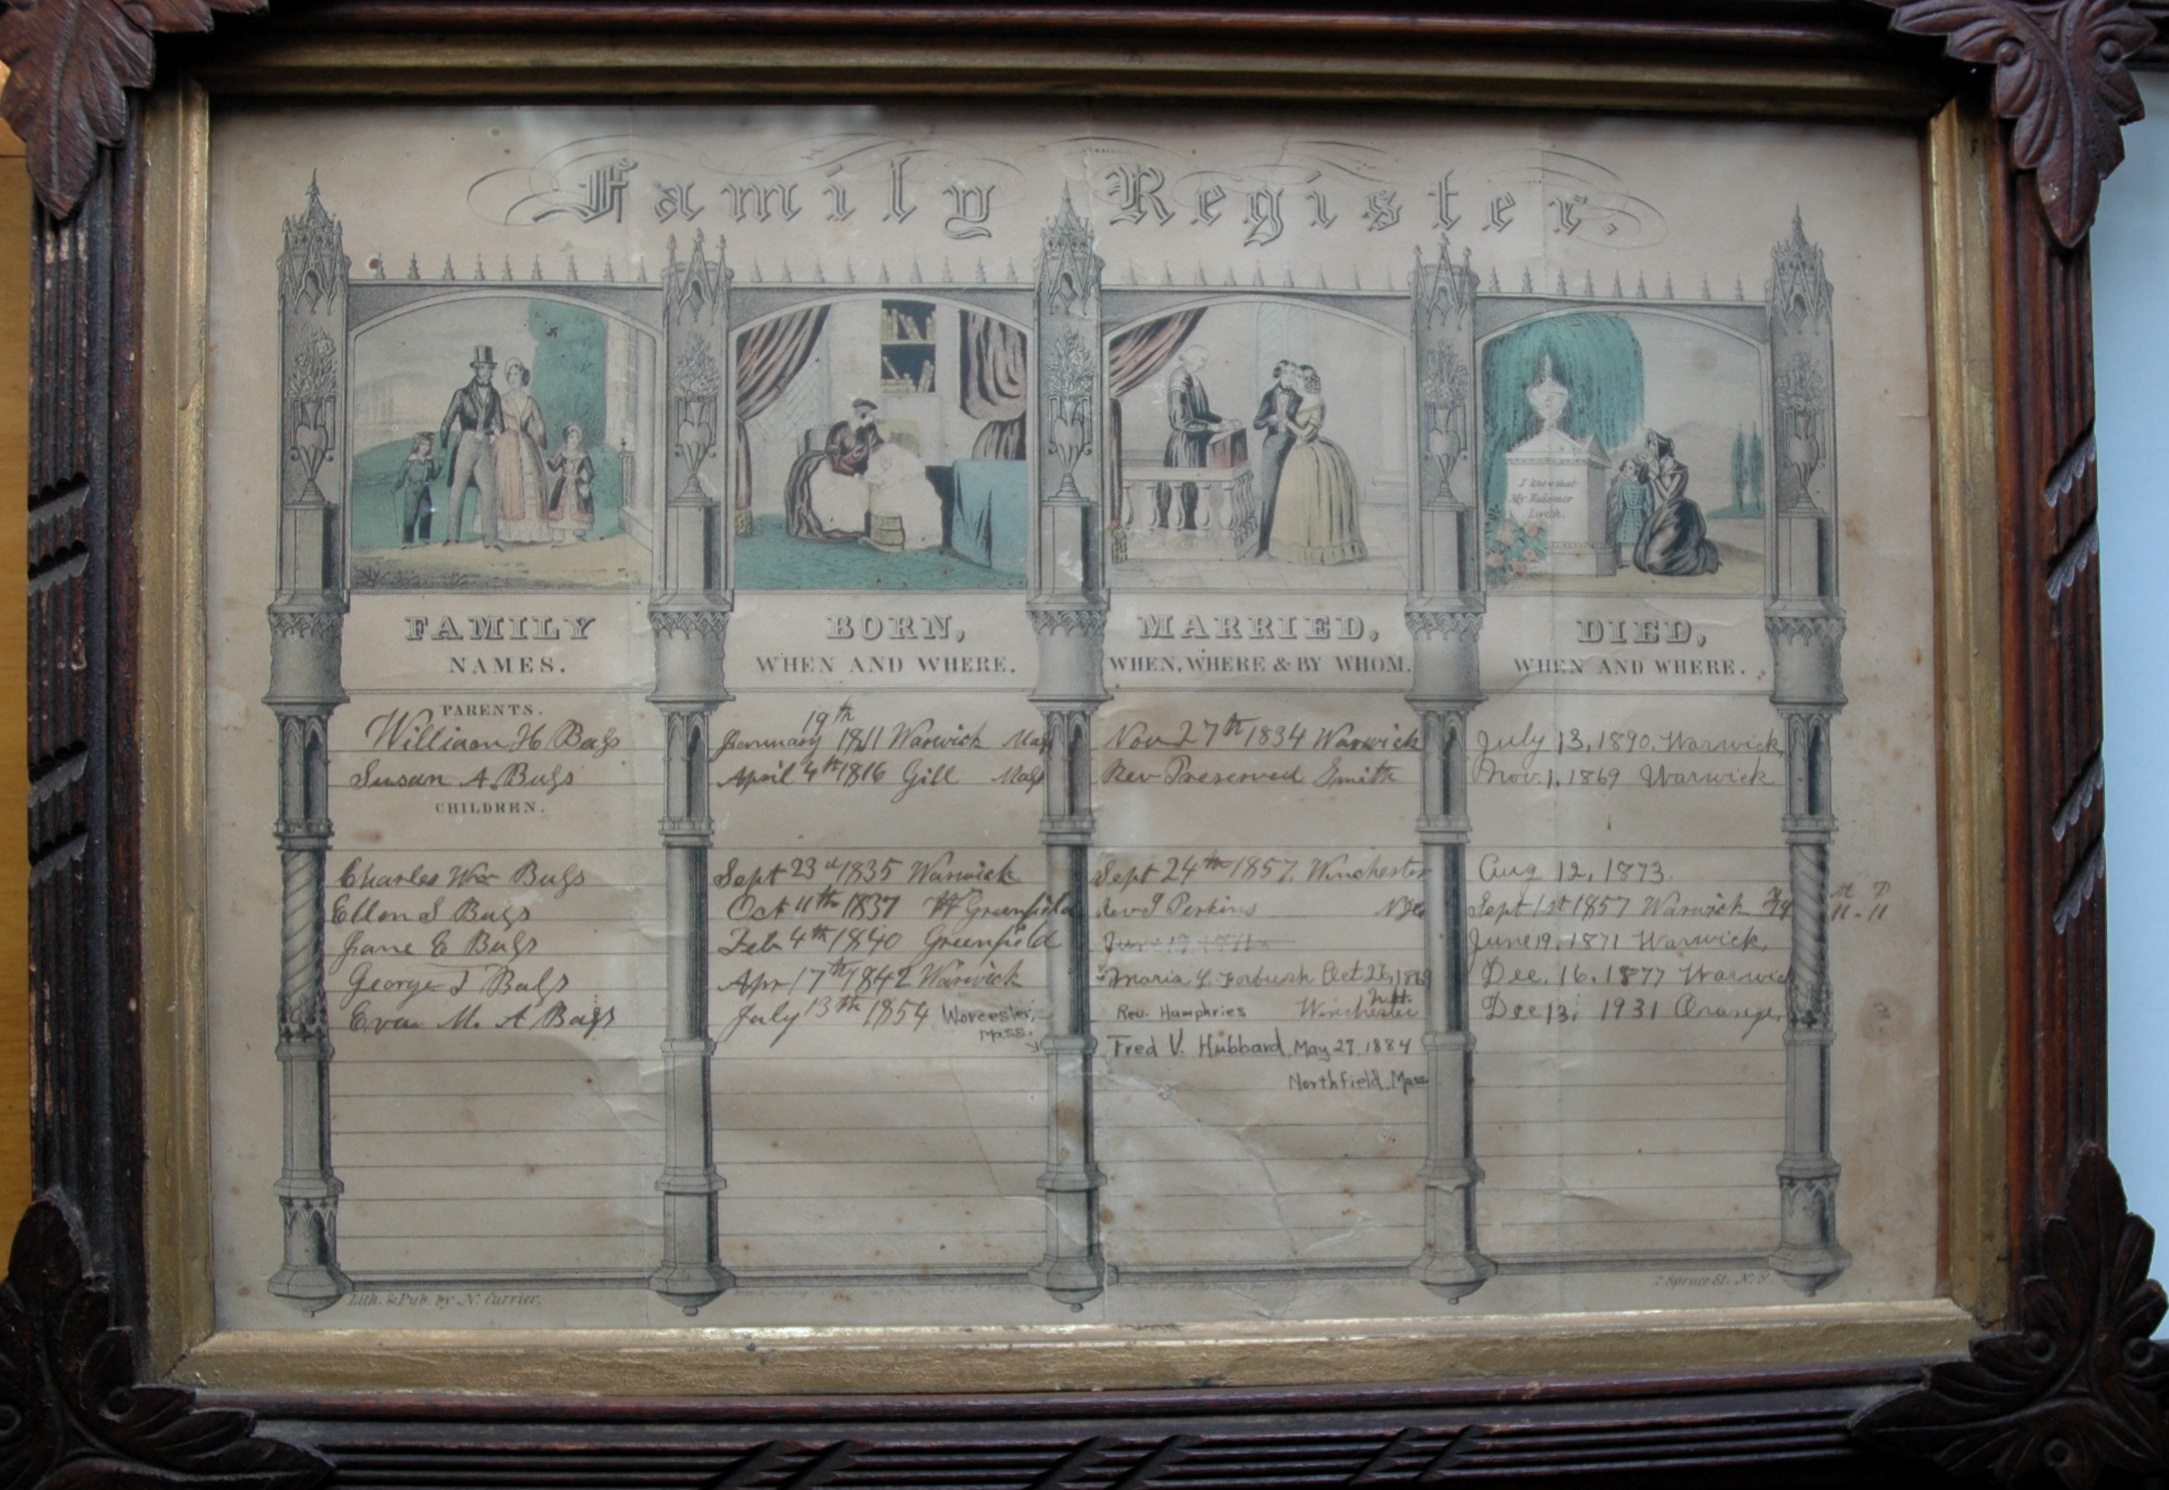 Family Register.
I know that
My Redeemer
Liveth.
FAMILY
NAMES.
BORN,
WHEN AND WHERE.
MARRIED,
WHEN, WHERE & BY WHOM.
DIED,
WHEN AND WHERE.
PARENTS.
William H Bass January 19th 1811 Warwick Mass Nov 27th 1834 Warwick July 13, 1890, Warwick,
Susan A. Bass April 4th 1816 Gill Mass Rev Preserved Smith Nov. 1, 1869 Warwick
CHILDREN.
Charles Wm Bass Sept 23d 1835 Warwick Sept 24th 1857, Winchester Aug 12, 1873.
Ellen S Bass Oct 11th 1837 Greenfield Rev J Perkins Sept 1st 1857 Warwick
Jane E Bass Feb 4th 1840 Greenfield June 19, 1871 June 19, 1871 Warwick,
George J Bass Apr 17th 1842 Warwick Maria L. Forbush Oct 26, 1869 Dec. 16. 1877 Warwick
Eva M. A Bass July 13th 1854 Worcester, Mass. Rev. Humphries Winchester N.H. Dec 13, 1931 Orange,
Fred V. Hubbard May 27, 1884
Northfield, Mass
Lith. & Pub. by N. Currier,
2 Spruce St. N.Y.